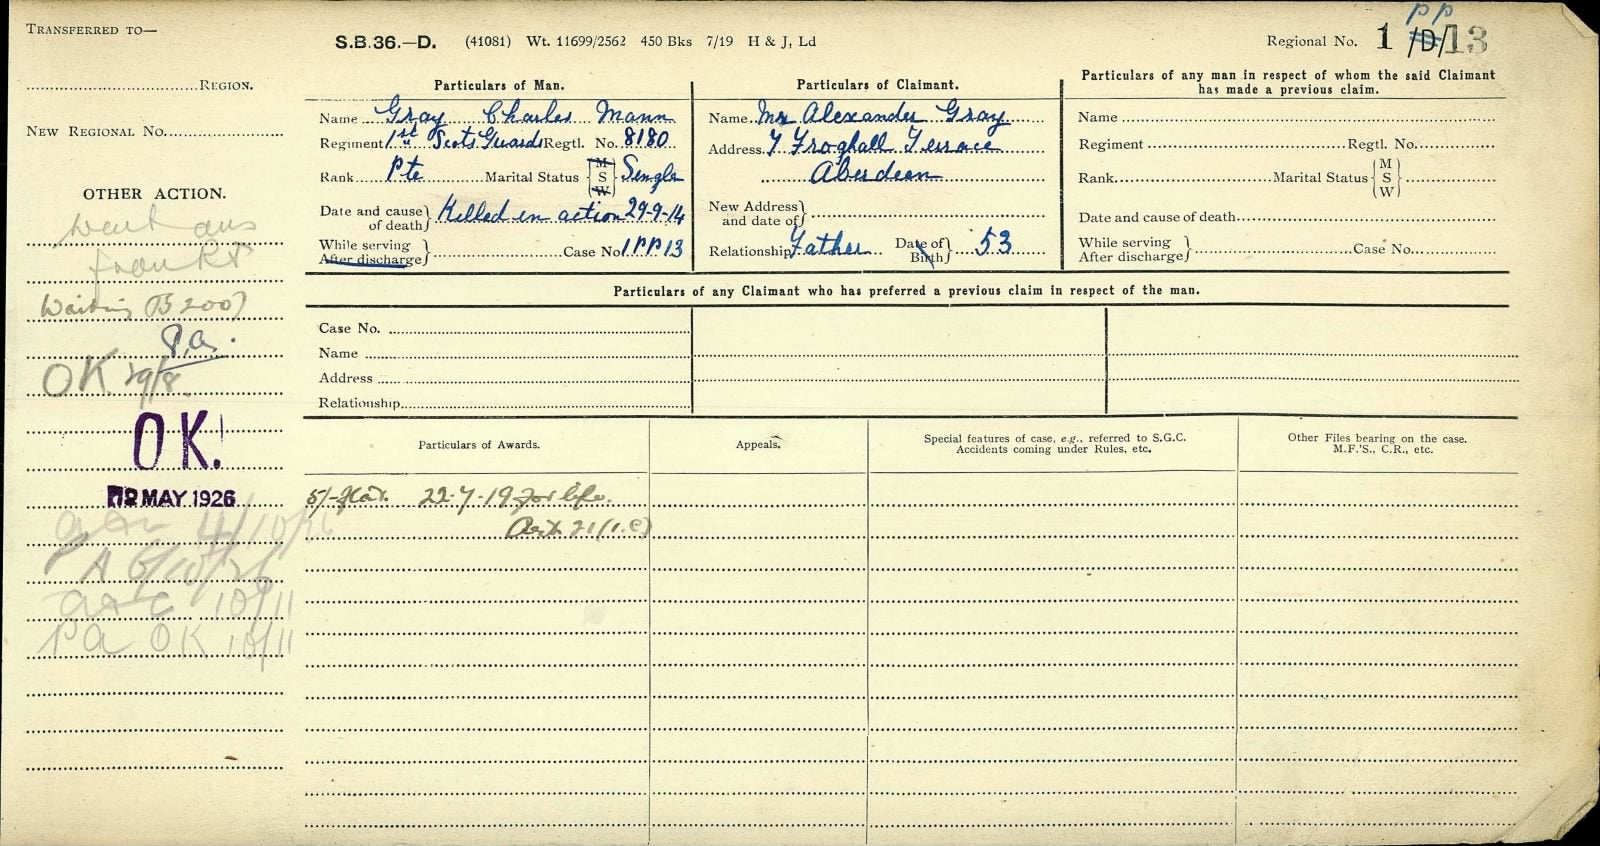 TRANSFERRED TO—
REGION.
NEW REGIONAL No.
OTHER ACTION.
Waiting B 2007
P.a.
OK 29/8.
OK!
12 MAY 1926
4/10/26
PA 6/10/26
10/11
PA OK 10/11
S.B.36.—D. (41081) Wt. 11699/2562 450 Bks 7/19 H & J, Ld
Regional No. 1 /D/ PP 13
Particulars of Man.
Name Gray Charles Mann
Regiment 1st Scots Guards Regtl. No. 8180
Rank Pte Marital Status {M S W} Single
Date and cause of death} Killed in action 29-9-14
While serving
After discharge} Case No 1 PP 13
Particulars of Claimant.
Name Mr Alexander Gray
Address 7 Froghall Terrace
Aberdeen
New Address and date of}
Relationship Father Date of Birth} 53
Particulars of any man in respect of whom the said Claimant
has made a previous claim.
Name
Regiment Regtl. No.
Rank Marital Status {M S W}
Date and cause of death
While serving
After discharge} Case No.
Particulars of any Claimant who has preferred a previous claim in respect of the man.
Case No.
Name
Address
Relationship
Particulars of Awards.
Appeals.
Special features of case, e.g., referred to S.G.C.
Accidents coming under Rules, etc.
Other Files bearing on the case.
M.F.'S., C.R., etc.
5/- flat. 22-7-19 for life.
Art 21 (1.C)